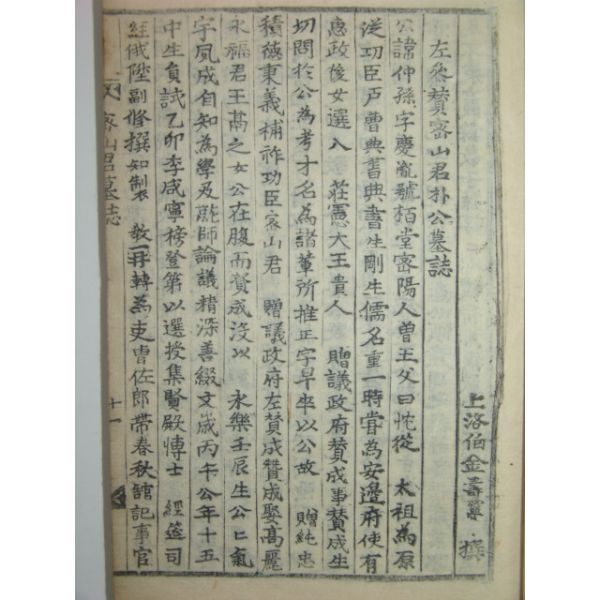 左參贊密山君朴公墓誌
上洛伯金壽寧撰
公諱仲孫字慶胤號栢堂密陽人曽王父曰忱從 太祖為原
從功臣戶曹典書典書生剛生儒名重一時甞為安邊府使有
惠政後女選入 莊憲大王貴人 贈議政府賛成事賛成生
切問扵公為考才名為諸輩所推正字早卒以公故 贈純忠
積德秉義補祚功臣密山君 贈議政府左賛成賛成娶髙麗
永福君王鬲之女公在腹而賛成沒以 永樂壬辰生公公氣
宇夙成自知為學及就師論議精深善綴文歲丙午公年十五
中生員試乙卯李咸寧榜登第以選授集賢殿博士 經筵司
經俄陞副修撰知製 教再轉為吏曹佐郎帶春秋舘記事官
密山君墓誌
十一